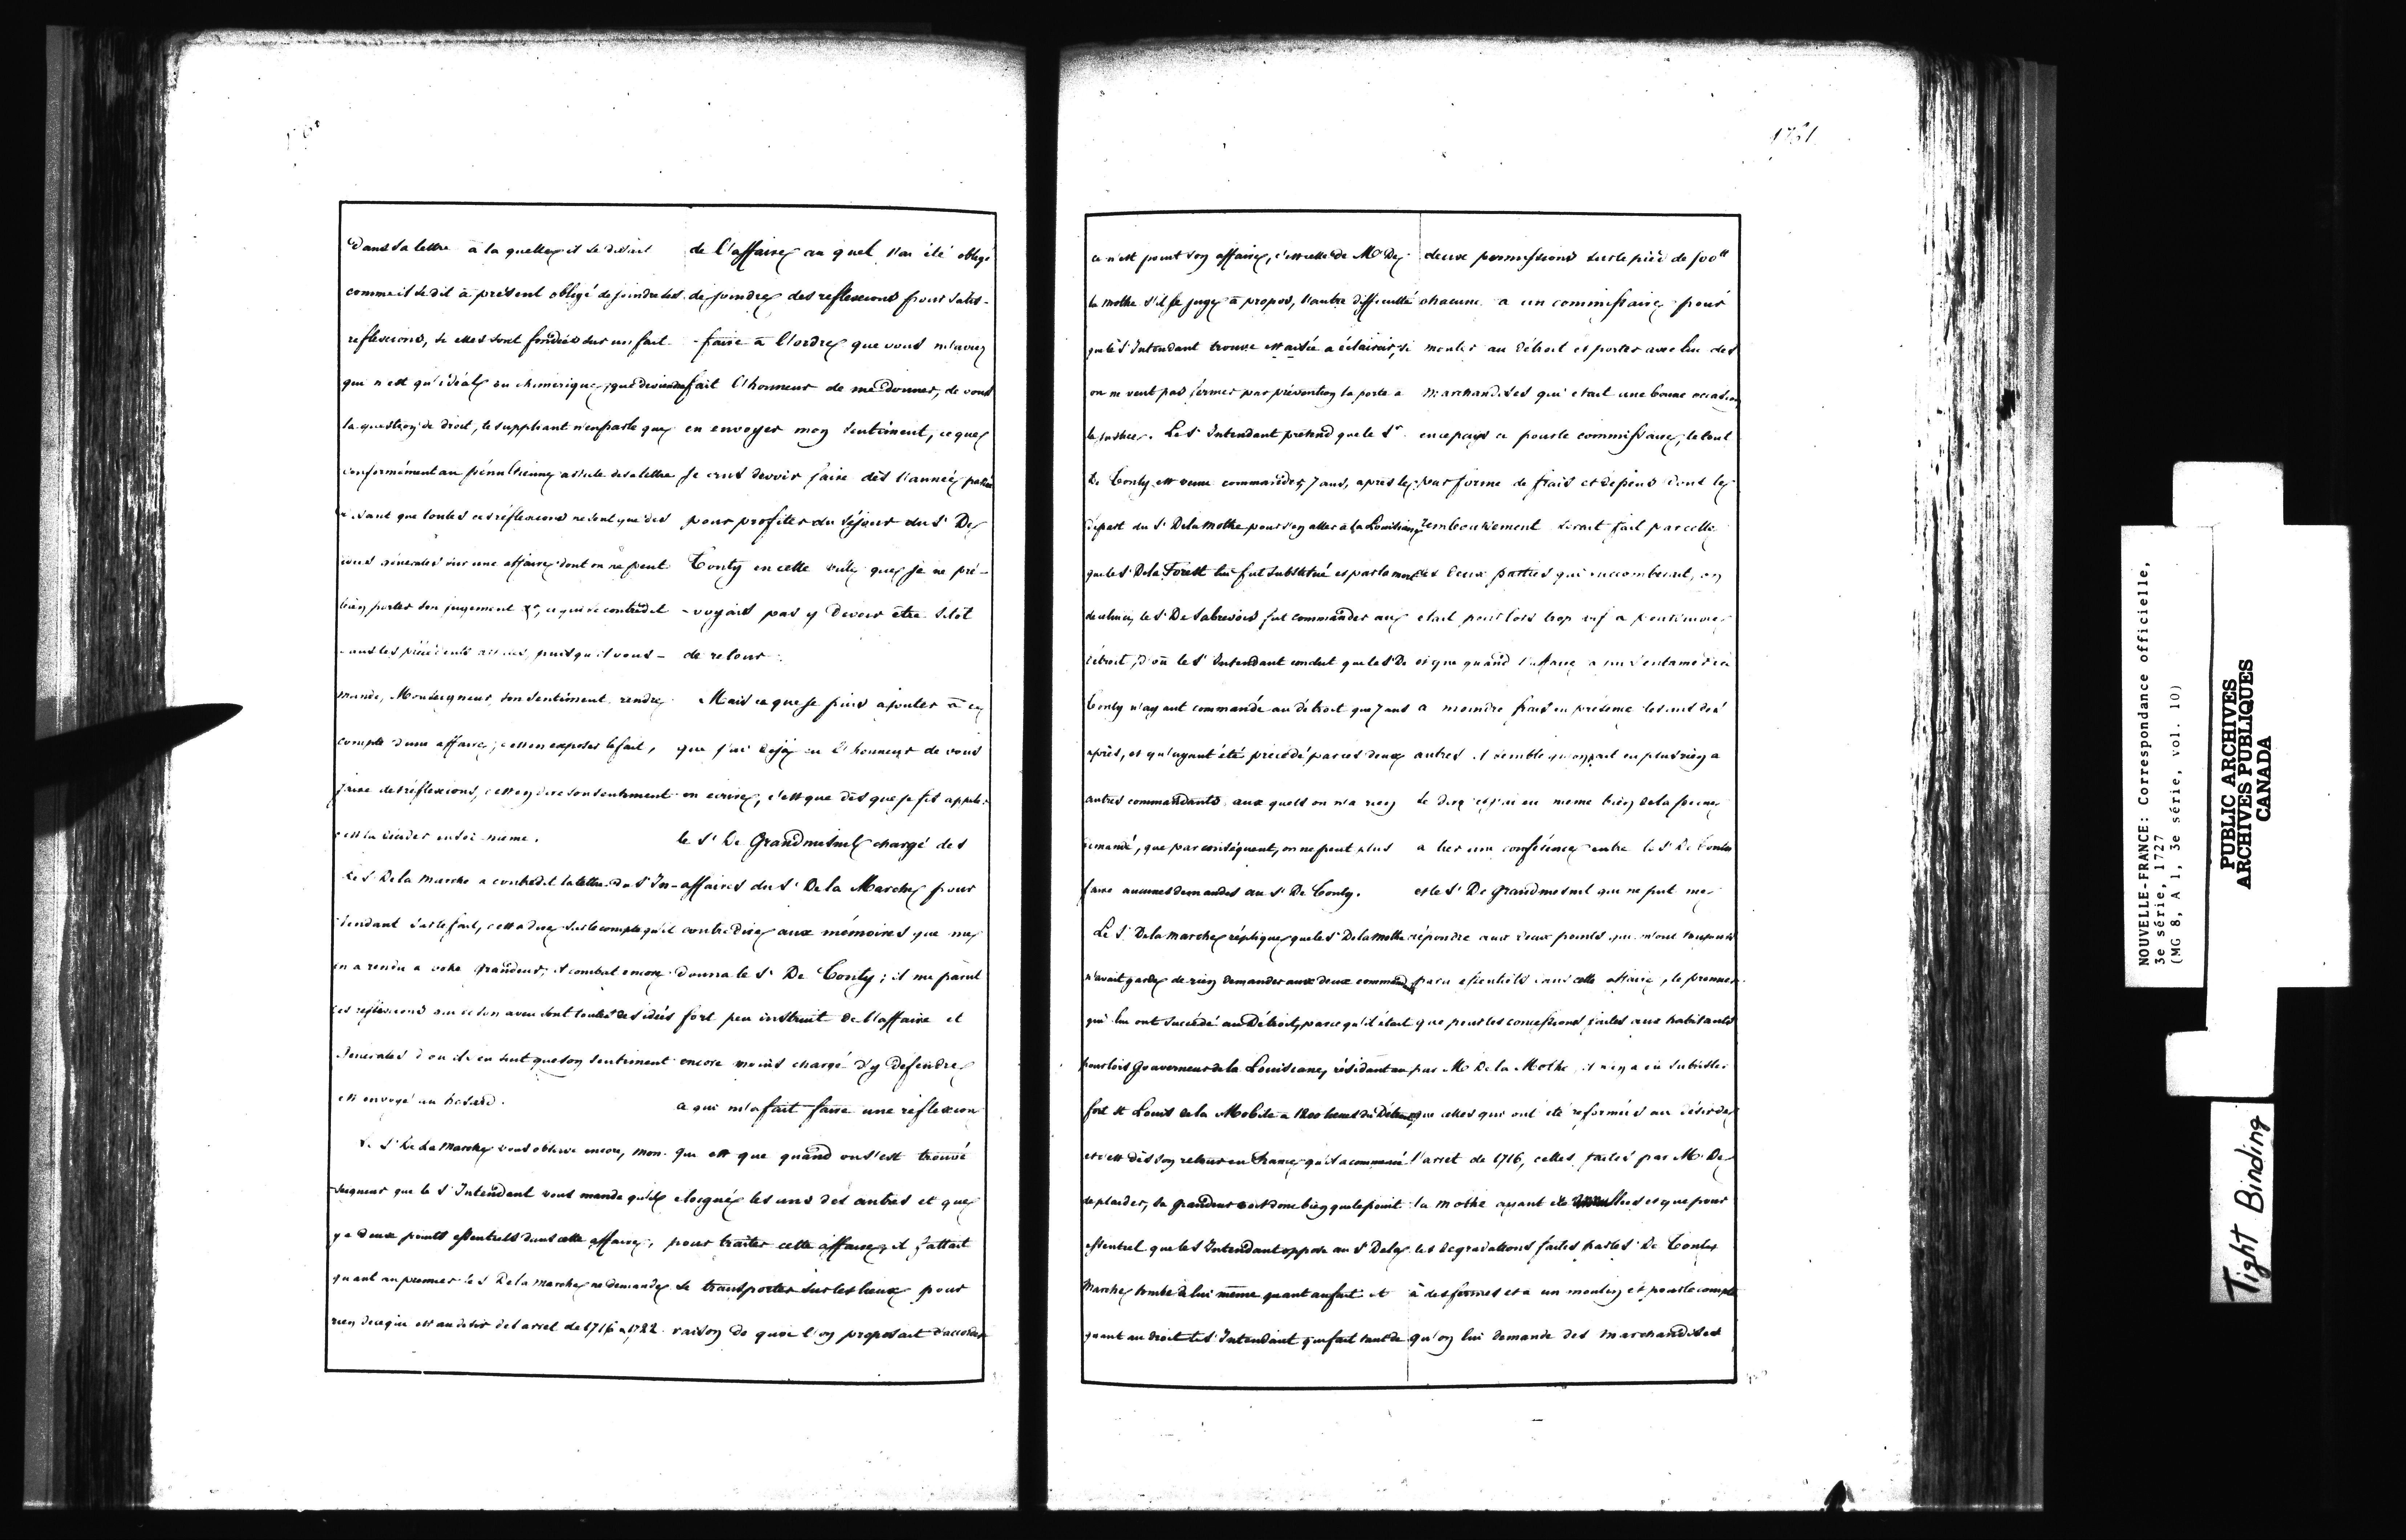 dans sa lettre à la quelle il se disait
comme il se dit à présent obligé de joindre ses
reflexions, si elles sont fondées sur un fait
qui n'est qu'idéal ou chimérique, que deviendra
la question de droit, le suppliant n'en parle que
conformément au pénultienne article de sa lettre
disant que toutes ces réflexions ne sont que des
idées générales sur une affaire dont on ne peut
bien porter son jugement &c, ce qui se contredit
dans les précédents articles, puis qu'il vous
mande, Monseigneur, son sentiment rendre
compte d'une affaire, c'est en exposer le fait,
faire des réflexions, c'est en dire son sentiment
c'est la decider en soi même.
Le S.r De la Marche a contredit la lettre du S.r In-
tendant sur le fait, c'est à dire sur le compte qu'il
en a rendu a votre Grandeur, il combat encore
ces reflexions qui de son aveu sont toutes des idées
générales d'où il s'en suit que son sentiment
est envoyé au hasard.
Le S.r De La Marche vous observe encore, Mon-
seigneur que le S.r Intendant vous mande qu'il
y a deux points essentiels dans cette affaire,
quant au premier le S.r De la Marche ne demande
rien de ce qui est au desir de l'arret de 1716 a 1722
de l'affaire au quel j'ai été obligé
de joindre des reflexions pour satis-
faire à l'ordre que vous m'aviez
fait l'honneur de me donner, de vous
en envoyer mon sentiment, ce que
Je crus devoir faire dès l'année passée
pour profiter du séjour du S.r De
Tonty en cette ville que je ne pré-
-voyais pas y devoir être sitôt
de retour.
Mais ce que je puis ajouter à ce
que j'ai déjà eu l'honneur de vous
en écrire, c'est que dès que je fis appeler
le S.r De Grandmesnil chargé des
affaires du S.r De la Marche pour
contredire aux mémoires que me
donna le S.r De Tonty; il me parut
fort peu instruit de l'affaire et
encore moins chargé d'y défendre
ce qui m'a fait faire une réflexion
qui est que quand on s'est trouvé
eloigné les uns des autres et que
pour traiter cette affaire, il fallait
se transporter sur les lieux pour
raison de quoi l'on proposait d'accorder
1761
ce n'est point son affaire, c'est celle de M.r De
la Mothe s'il le juge à propos, l'autre difficulté
que le S.r Intendant trouve est aisée a éclaircir, si
on ne veut pas fermer par prévention la porte a
la justice. Le S.r Intendant prétend que le S.r
De Tonty est venu commander 7 ans, après le
départ du S.r De la Mothe pour s'en aller à la Louisiane
que le S.r De la Forest lui fut substitué et par la mort
de celui cy le S.r De Sabrevois fut commander au
Détroit, d'où le S.r Intendant conclut que le S.r De
Tonty n'ayant commandé au détroit que 7 ans
après, et qu'ayant été précédé par ces deux
autres commandants aux quels on n'a rien
demandé, que par conséquent, on ne peut plus
faire aucunes demandes au S.r De Tonty.
Le S.r De la Marche réplique que le S.r De la Mothe
n'avait garde de rien demander aux deux command.ts
qui lui ont succédé au Détroit, parce qu'il était
pour lors Gouverneur de la Louisiane, résidant au
fort St Louis de la Mobile a 1200 lieues du Détroit
et c'est dès son retour en France qu'il a commencé
de plaider, sa grandeur voit donc bien que le point
essentiel que le S.r Intendant oppose au S.r De la
Marche tombe de lui même quant au fait et
quant au droit le S.r Intendant qui fait tant de
deux permissions sur le pied de 500tt
chacune a un commissaire pour
monter au Détroit et porter avec lui des
marchandises qui etait une bonne occasion
en ce pays ci pour le commissaire, le tout
par forme de frais et depens dont le
remboursement serait fait par celle
des deux parties qui succomberait, on
etait pour lors trop vif a
et que quand l'affaire a pu s'entamer ici
a moindre frais en presence les uns des
autres il semble qu'on n'ait eu plus rien a
se dire et j'ai eu meme bien de la peine
a lier une conférence entre le S.r De Tonty
et le S.r De Grandmesnil qui ne put me
répondre aux deux points qui m'ont toujours
paru essentiels dans cette affaire, le premier
que pour les concessions faites aux habitants
par M.r De la Mothe, il n'en a dû subsister
que celles qui ont été reformées au désir de
l'arret de 1716, celles faites par M.r De
la Mothe ayant été et que pour
les degradations faites par le S.r De Tonty
à des fermes et a un moulin et pour le compte
qu'on lui demande des marchandises
NOUVELLE-FRANCE: Correspondance officielle,
3e série, 1727
(MG 8, A 1, 3e série, vol. 10)
PUBLIC ARCHIVES
ARCHIVES PUBLIQUES
CANADA
Tight Binding